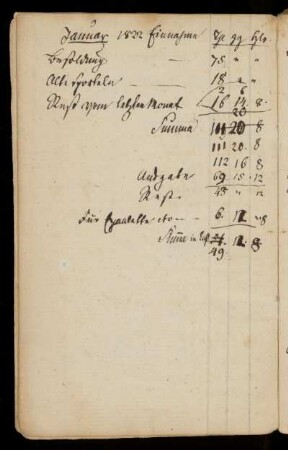 Januar 1822 Einnahme rh gg hlr
Besoldung — 75 " "
Alte Sporteln — 18 " "
2 6
Rest vom letzten Monat 16 14. 8.
20
Summa 111 20 8
111 20. 8
112 16 8
Ausgabe 69. 15. 12
Rest 43 " "
Für — 6. 12 8
Summe in 12. 8
49.